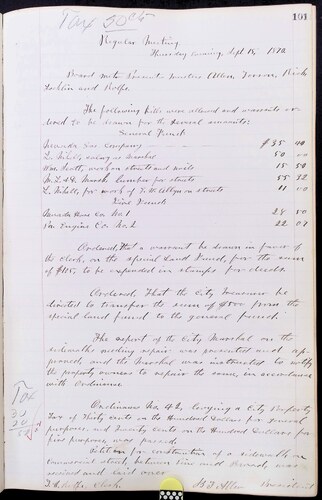 Tax 50cts
101
Regular Meeting
Thursday Evening, Sept 18, 1872
Board met. Present Messrs Allen, Rich
and Rolfe.
The following bills were allowed and warrants or-
dered to be drawn for the several amounts:
General Fund
Nevada Gas Company $35 40
acting as Marshal 50 00
Wm. Scott, work on streets and 15 50
Lumber for streets 55 32
for work of on streets 11 00
Fire Fund
Nevada Hose Co. No. 1 28 50
Engine Co. No. 2 22 07
Ordered, that a warrant be drawn in favor of
the Clerk, on the Special Land Fund, for the sum
of $15, to be expended in stamps for deeds.
Ordered, That the City Treasurer be
directed to transfer the sum of $500 from the
special land fund to the general fund.
The report of the City Marshal on the
sidewalks needing repair was presented and ap-
proved, and the Marshal was instructed to notify
the property owners to repair the same, in accordance
with Ordinance
Tax
30
20
Ordinance No. 42, levying a City Property
Tax of Thirty Cents on the Hundred Dollars for general
purposes, and Twenty Cents on the Hundred Dollars for
fire purposes was passed.
Petition for construction of a sidewalk on
Commercial street, between Pine and was
received and laid over.
Clerk President